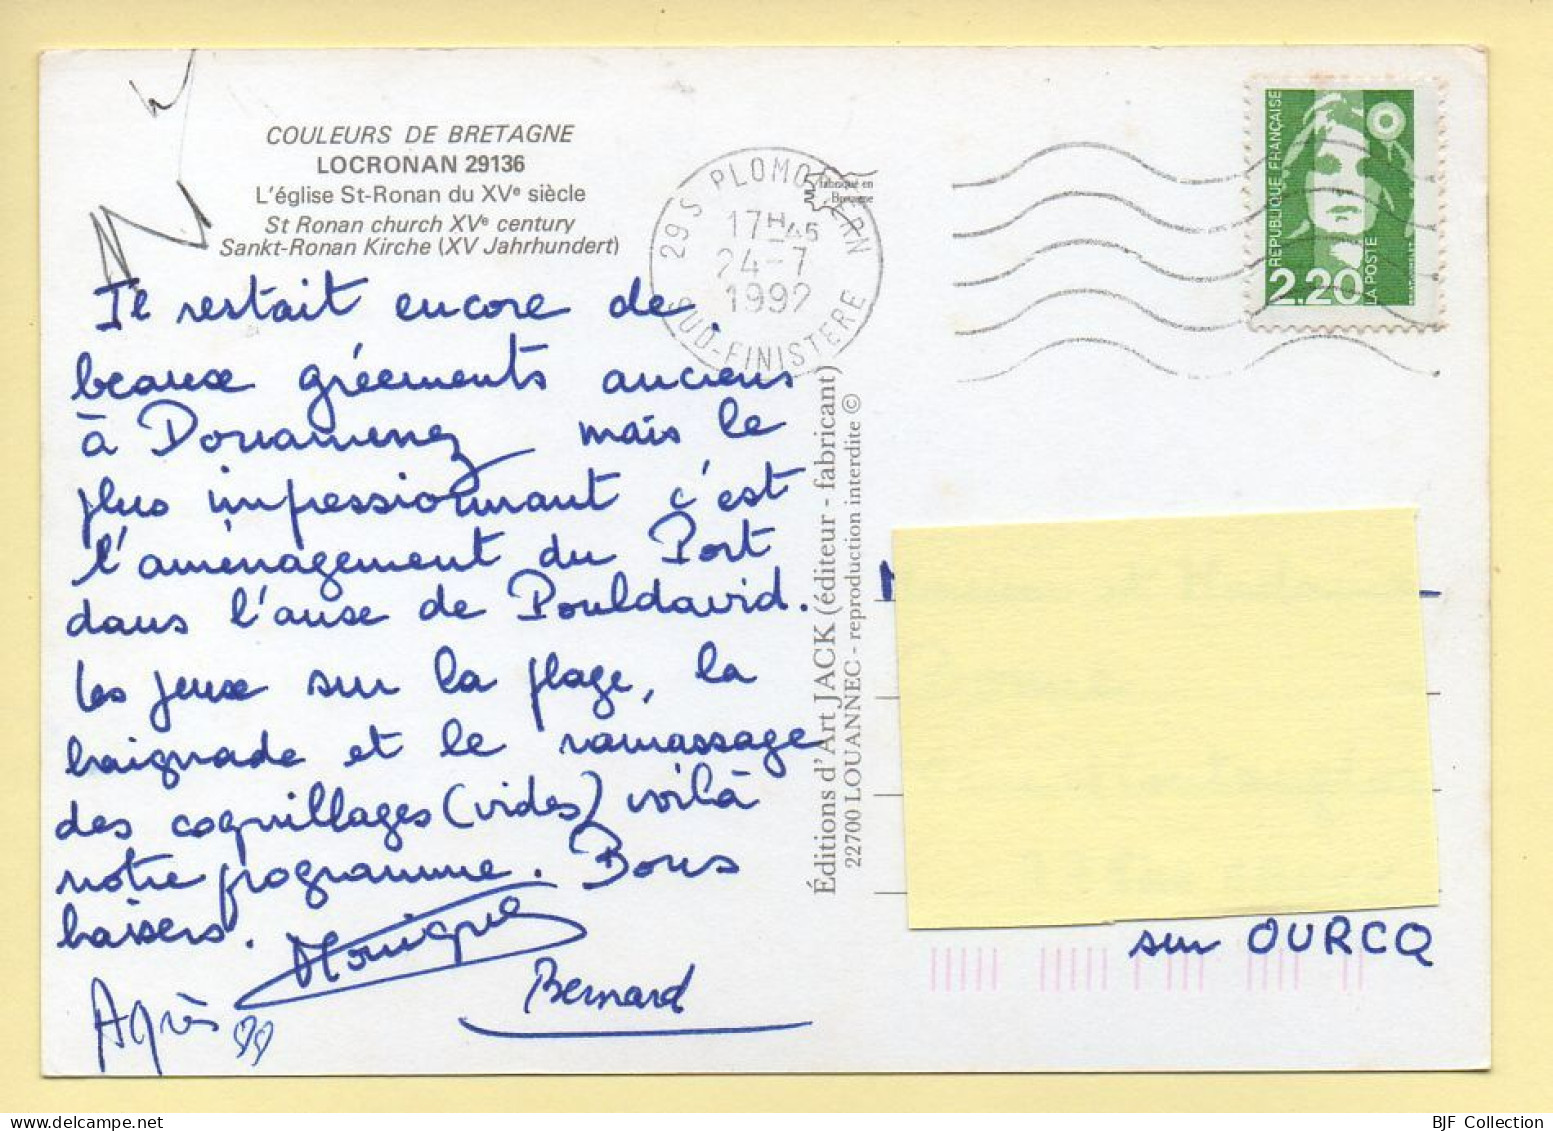 COULEURS DE BRETAGNE
LOCRONAN 29136
L'église St-Ronan du XVe siècle
St Ronan church XVe century
Sankt-Ronan Kirche (XV Jahrhundert)
Il restait encore de
beaux gréements anciens
à Douarnenez mais le
plus impressionnant c'est
l'aménagement du Port
dans l'anse de Pouldavid.
Les jeux sur la plage, la
baignade et le ramassage
des coquillages (vides) voilà
notre programme. Bons
baisers. Monique
Bernard
Agnès
29 S PLOMODIERN
17H45
24-7
1992
SUD-FINISTERE
fabriqué en
Bretagne
Éditions d'Art JACK (éditeur - fabricant)
22700 LOUANNEC - reproduction interdite ©
REPUBLIQUE FRANCAISE
2,20
LA POSTE
sur OURCQ
BJF Collection